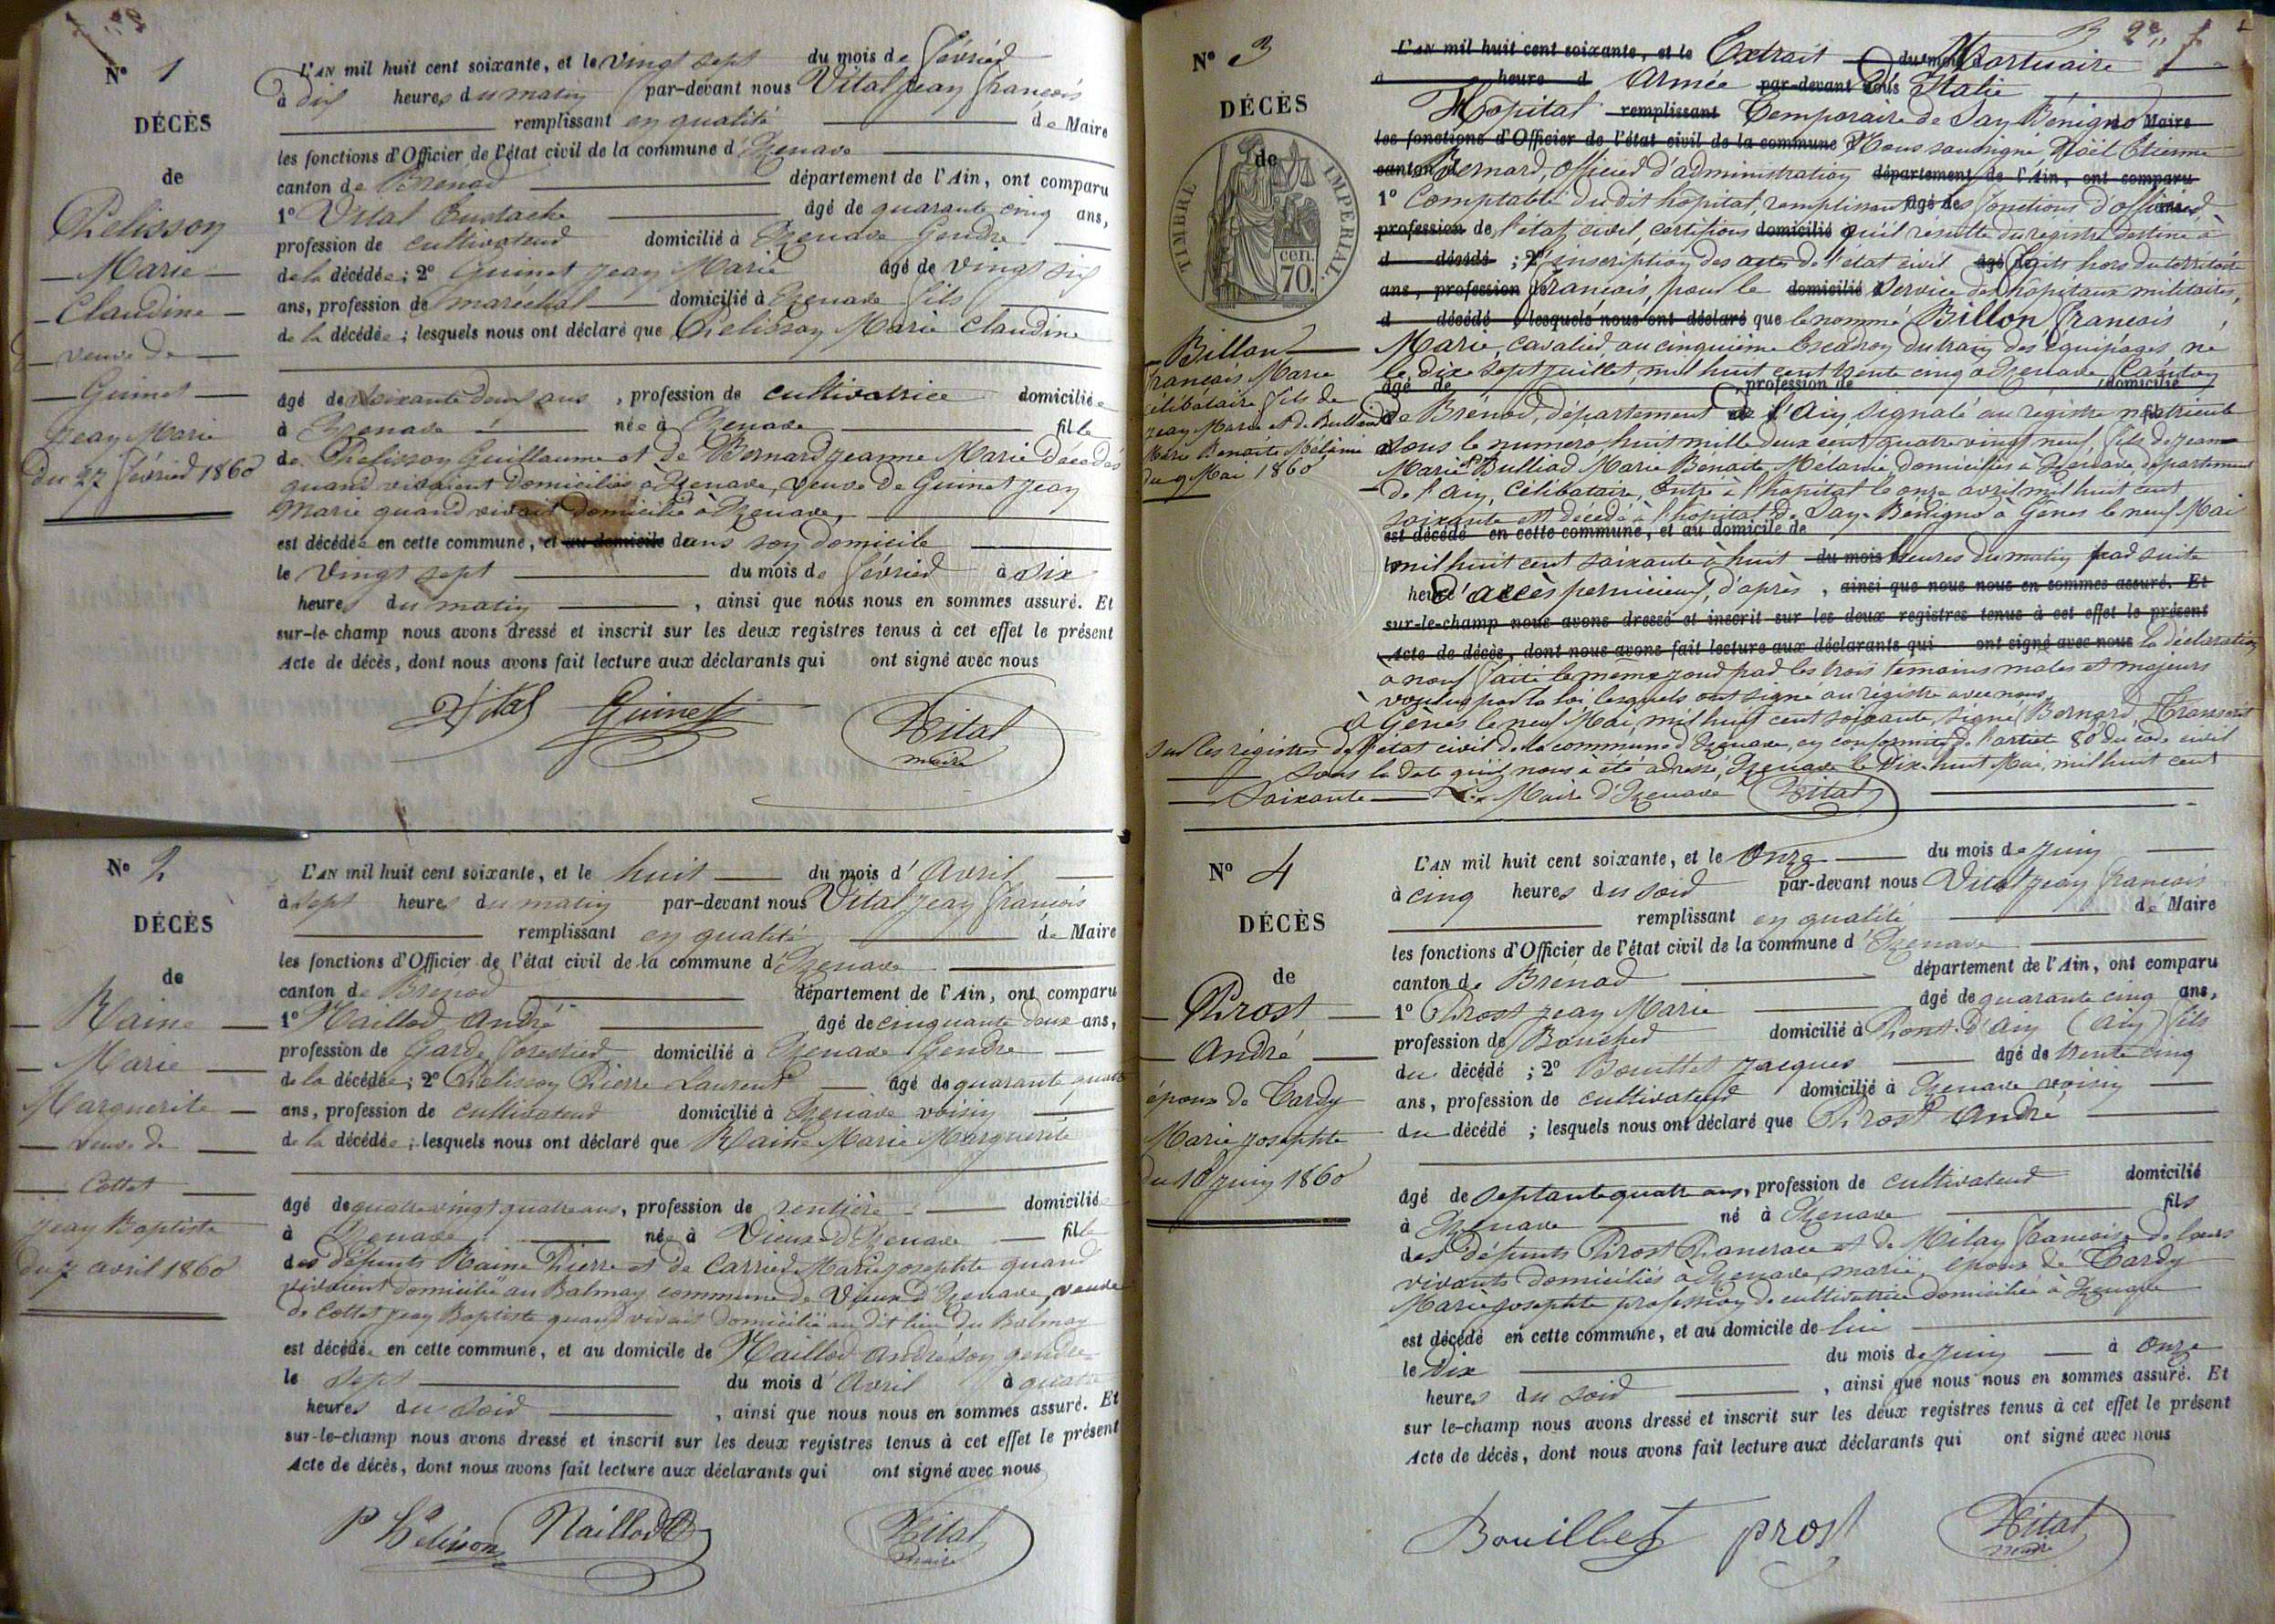 N° 1
DÉCÈS
de
Pelisson
Marie
Claudine
veuve de
Guinet
Jean Marie
du 27 Février 1860
L'AN mil huit cent soixante, et le vingt sept du mois de Février
à dix heures du matin par-devant nous Vital Jean François
remplissant en qualité de Maire
les fonctions d'Officier de l'état civil de la commune d'Izenave
canton de Brénod département de l'Ain, ont comparu
1° Vital Eustache âgé de quarante cinq ans,
profession de cultivateur domicilié à Izenave Gendre
de la décédée; 2° Guinet Jean Marie âgé de vingt six
ans, profession de maréchal domicilié à Izenave fils
de la décédée; lesquels nous ont déclaré que Pelisson Marie Claudine
âgé de soixante deux ans, profession de cultivatrice domiciliée
à Izenave née à Izenave fille
de Pelisson Guillaume et de Bernard Jeanne Marie décédés
quand vivaient domiciliés à Izenave, veuve de Guinet Jean
Marie quand vivait domicilié à Izenave,
est décédée en cette commune, et au domicile dans son domicile
le vingt sept du mois de Février à six
heures du matin, ainsi que nous nous en sommes assuré. Et
sur-le-champ nous avons dressé et inscrit sur les deux registres tenus à cet effet le présent
Acte de décès, dont nous avons fait lecture aux déclarants qui ont signé avec nous
Vital Guinet Vital
maire
N° 2
DÉCÈS
de
Raine
Marie
Marguerite
veuve de
Cottet
Jean Baptiste
du 7 avril 1860
L'AN mil huit cent soixante, et le huit du mois d'Avril
à sept heures du matin par-devant nous Vital Jean François
remplissant en qualité de Maire
les fonctions d'Officier de l'état civil de la commune d'Izenave
canton de Brénod département de l'Ain, ont comparu
1° Maillod André âgé de cinquante deux ans,
profession de Garde forestier domicilié à Izenave Gendre
de la décédée; 2° Pelisson Pierre Laurent âgé de quarante quatre
ans, profession de cultivateur domicilié à Izenave voisin
de la décédée; lesquels nous ont déclaré que Raine Marie Marguerite
âgé de quatre vingt quatre ans, profession de rentière domiciliée
à Izenave née à Vieux d'Izenave fille
des défunts Raine Pierre et de Carrier Marie Josephte quand
vivaient domiciliés au Balmay commune de Vieux d'Izenave, veuve
de Cottet Jean Baptiste quand vivait domicilié au dit lieu du Balmay
est décédée en cette commune, et au domicile de Maillod André son gendre
le sept du mois d'Avril à quatre
heures du soir, ainsi que nous nous en sommes assuré. Et
sur-le-champ nous avons dressé et inscrit sur les deux registres tenus à cet effet le présent
Acte de décès, dont nous avons fait lecture aux déclarants qui ont signé avec nous
P Pelisson Maillod Vital
maire
N° 3
DÉCÈS
de
TIMBRE IMPERIAL
cen.
70.
Billon
François Marie
célibataire fils de
Jean Marie et de Bulliod
Marie Benoite Mélanie
du 9 Mai 1860
L'AN mil huit cent soixante, et le Extrait du mois d Mortuaire
à heure d Armée par-devant nous d'Italie
Hopital remplissant Temporaire de San Bénigno Maire
les fonctions d'Officier de l'état civil de la commune d Nous soussigné, Noël Etienne
canton d Bernard, officier d'administration département de l'Ain, ont comparu
1° Comptable du dit hopital, remplissant âgé de les fonctions d'officier ans,
profession de l'état civil, certifions domicilié qu'il résulte du registre destiné à
d décédé ; 2° l'inscription des actes de l'état civil âgé de faits hors du territoire
ans, profession d français, pour le domicilié à service des hopitaux militaires,
d décédé ; lesquels nous ont déclaré que le nommé Billon François
Marie, cavalier au cinquième Escadron du train des équipages, né
le dix sept juillet, mil huit cent trente cinq à Izenave Canton
âgé de profession de domicilié
de Brénod, département de l'Ain, signalé au régistre matricule
sous le numéro huit mille deux cent quatre vingt neuf, fils de Jean
Marie et Bulliod Marie Benoite Mélanie, domiciliés à Izenave département
de l'Ain, Célibataire, Entré à l'hopital le onze avril mil huit cent
soixante est décédé à l'hopital de San Benigno à Gênes le neuf Mai
est décédé en cette commune, et au domicile de
mil huit cent soixante à huit du mois heures du matin par suite
heure d'accès pernicieux, d'après, ainsi que nous nous en sommes assuré. Et
sur-le-champ nous avons dressé et inscrit sur les deux registres tenus à cet effet le présent
Acte de décès, dont nous avons fait lecture aux déclarants qui ont signé avec nous la déclaration
à nous faite le même jour par les trois témoins males et majeurs
voulus par la loi, lesquels ont signé au régistre avec nous.
à Gênes le neuf Mai, mil huit cent soixante, signé Bernard, Transcrit
sur les régistres de l'état civil de la commune d'Izenave, en conformité de l'article 80 du code civil
sous la date qu'il nous a été adressé, Izenave le Dix huit Mai, mil huit cent
soixante Le Maire d'Izenave Vital
N° 4
DÉCÈS
de
Prost
André
époux de Tardy
Marie Josephte
du 10 Juin 1860
L'AN mil huit cent soixante, et le Onze du mois de Juin
à cinq heures du soir par-devant nous Vital Jean François
remplissant en qualité de Maire
les fonctions d'Officier de l'état civil de la commune d'Izenave
canton de Brénod département de l'Ain, ont comparu
1° Prost Jean Marie âgé de quarante cinq ans,
profession de Boucher domicilié à Pont-d'Ain (Ain) fils
du décédé ; 2° Bouillet Jacques âgé de trente cinq
ans, profession de cultivateur domicilié à Izenave voisin
du décédé ; lesquels nous ont déclaré que Prost André
âgé de septante quatre ans, profession de cultivateur domicilié
à Izenave né à Izenave fils
des défunts Prost Pancrace et de Milan Françoise de leurs
vivants domiciliés à Izenave, marié, époux de Tardy
Marie Josephte profession de cultivatrice domiciliée à Izenave
est décédé en cette commune, et au domicile de lui
le Dix du mois de Juin à Onze
heures du soir, ainsi que nous nous en sommes assuré. Et
sur le-champ nous avons dressé et inscrit sur les deux registres tenus à cet effet le présent
Acte de décès, dont nous avons fait lecture aux déclarants qui ont signé avec nous
Bouillet prost Vital
maire